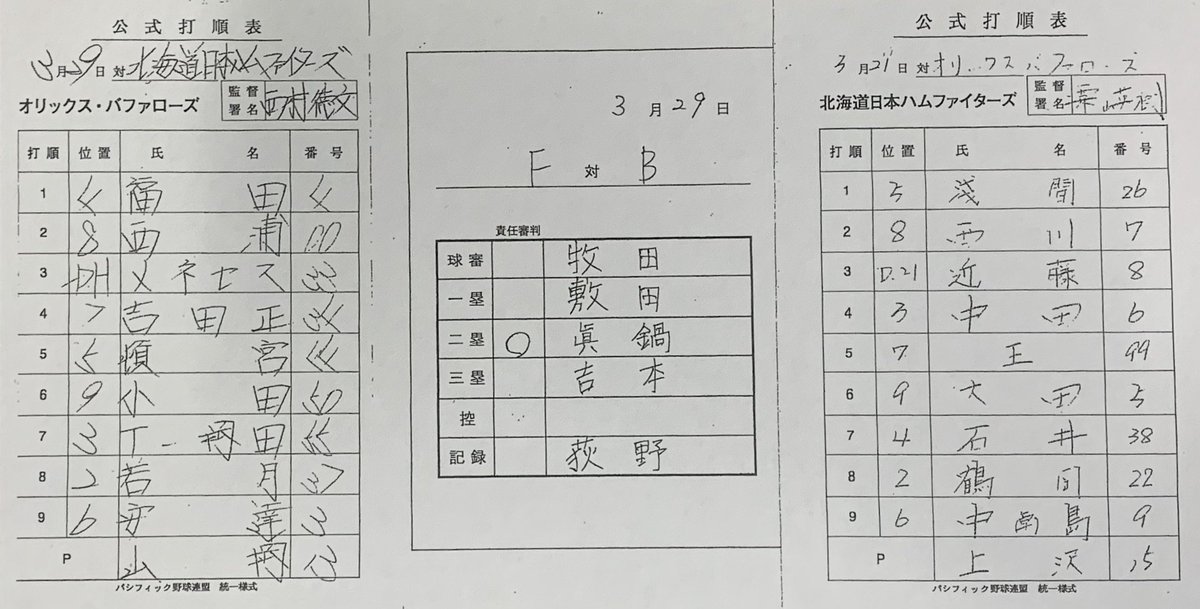 公式打順表
3月29日 対 北海道日本ハムファイターズ
オリックス・バファローズ 監督署名 西村徳文
打順 位置 氏名 番号
1 4 福田 4
2 8 西浦 00
3 DH メネセス 33
4 7 吉田正 34
5 5 頓宮 44
6 9 小田 50
7 3 T-岡田 55
8 2 若月 37
9 6 安達 3
P 山岡 13
パシフィック野球連盟 統一様式
3月29日
F 対 B
責任審判
球審 牧田
一塁 敷田
二塁 ○ 眞鍋
三塁 吉本
控
記録 荻野
公式打順表
3月29日 対 オリックスバファローズ
北海道日本ハムファイターズ 監督署名 栗山英樹
打順 位置 氏名 番号
1 5 淺間 26
2 8 西川 7
3 D.H 近藤 8
4 3 中田 6
5 7 王 99
6 9 大田 5
7 4 石井 38
8 2 鶴岡 22
9 6 中島 9
P 上沢 15
パシフィック野球連盟 統一様式